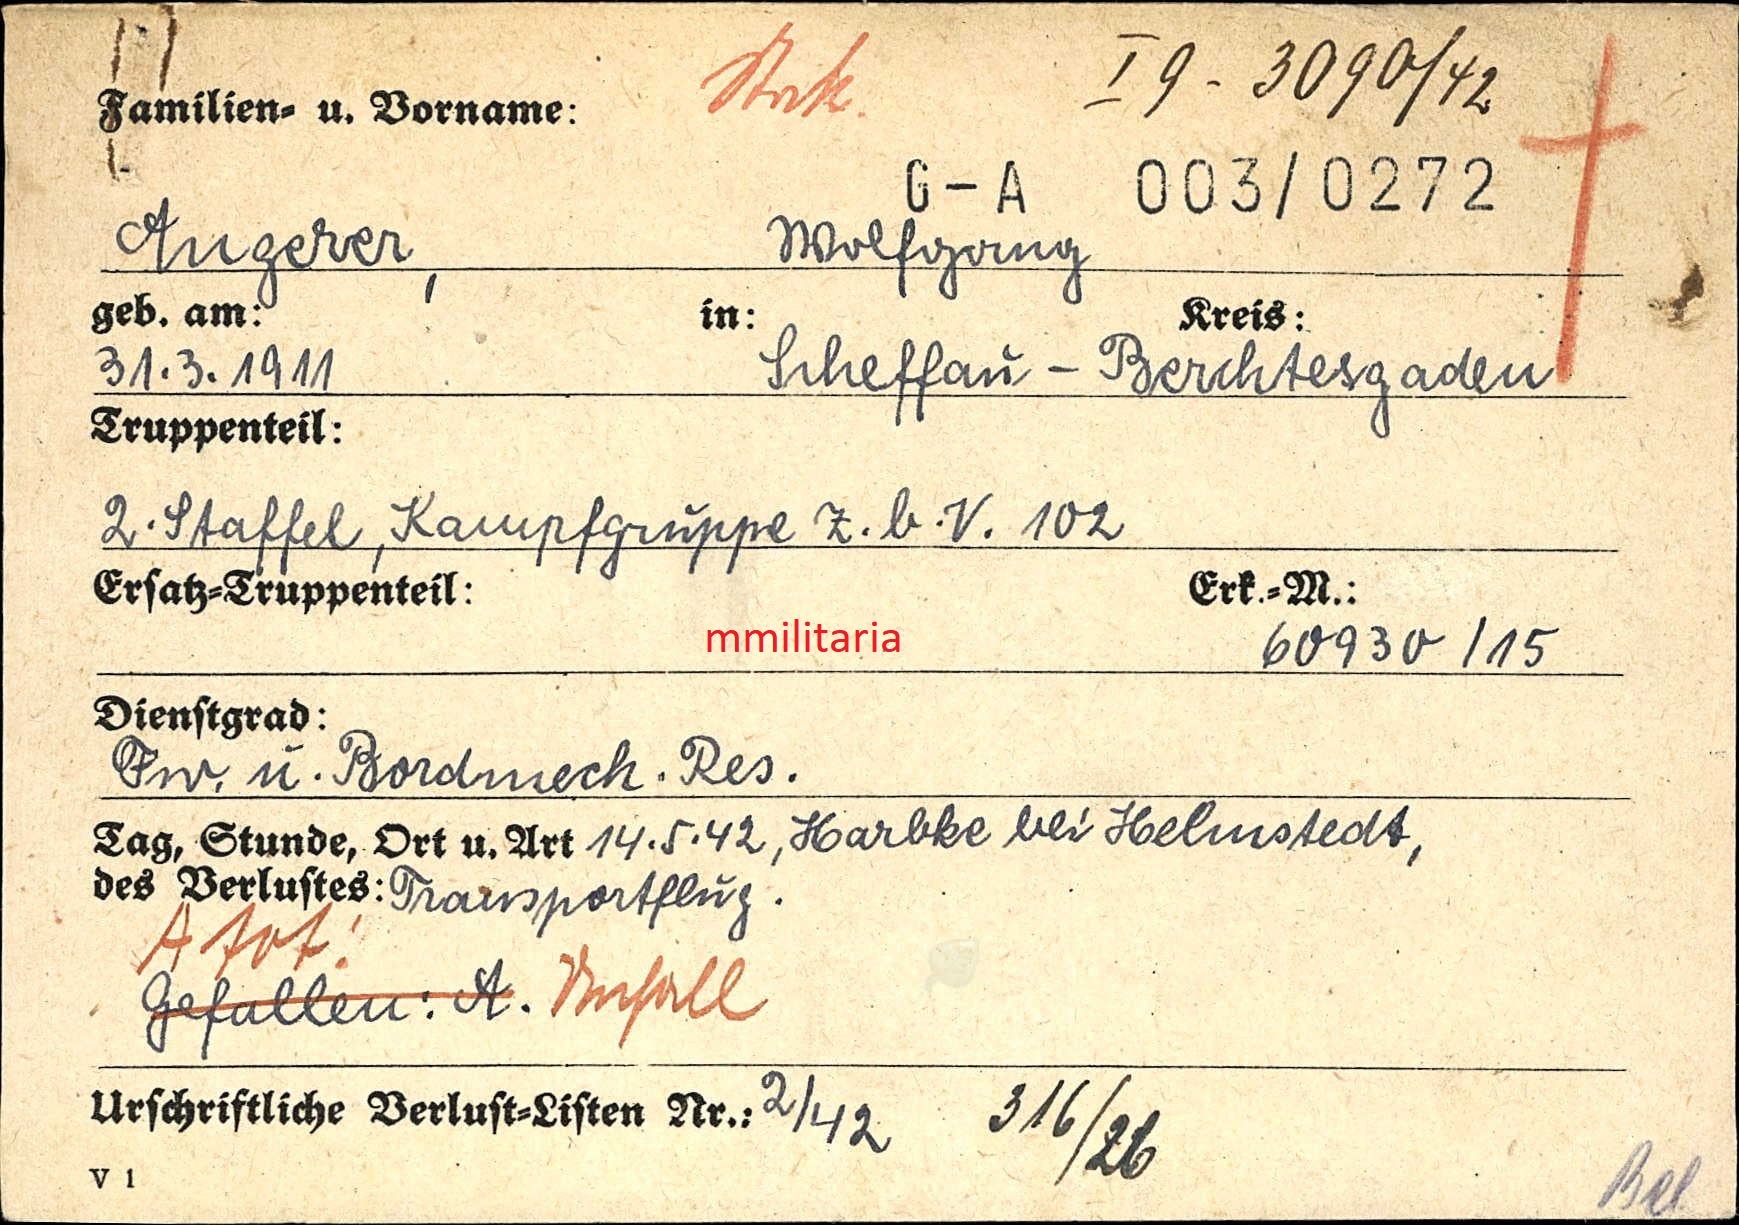 Stck.
I 9 - 3090/42
Familien- u. Vorname:
G-A 003/0272
Angerer, Wolfgang
geb. am: in: Kreis:
31.3.1911 Scheffau - Berchtesgaden
Truppenteil:
2. Staffel, Kampfgruppe z.b.V. 102
Ersatz-Truppenteil: Erk.-M.:
mmilitaria
60930 /15
Dienstgrad:
Fw. u. Bordmech. Res.
Tag, Stunde, Ort u. Art 14.5.42, Harbke bei Helmstedt,
des Verlustes: Transportflug.
A tot!
Gefallen: A. Unfall
Urschriftliche Verlust-Listen Nr.: 2/42 316/26
V 1